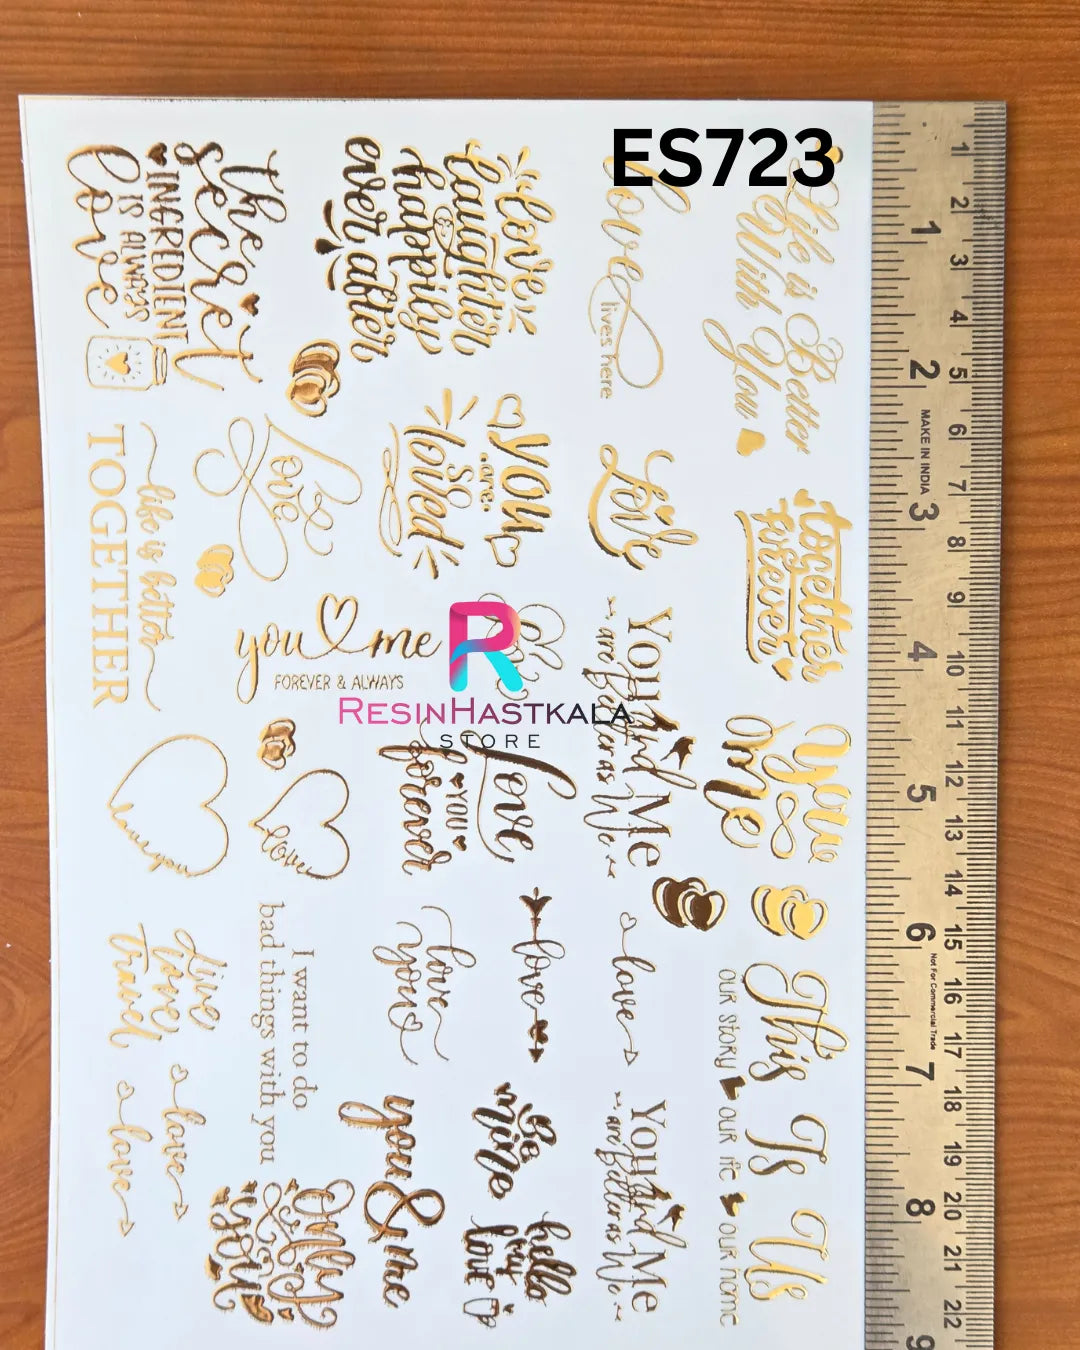 ES723
Life is Better
With You
love
lives here
love
laughter
&
happily
ever after
the
secret
INGREDIENT
IS ALWAYS
love
together
forever
Love
you
are
so
loved
Love
life is better
TOGETHER
You And Me
are Better as We
you me
FOREVER & ALWAYS
R
RESINHASTKALA
STORE
You
&
Me
Love
YOU
forever
love
love you
This Is Us
OUR STORY OUR life OUR home
love
love
love
you
I want to do
bad things with you
Live
love
travel
You And Me
are Better as We
Be
Mine
hello
my
love
you & me
Only
you
love
love
1 2 3 4 5 6 7 8 9 10 11 12 13 14 15 16 17 18 19 20 21 22
1 2 3 4 5 6 7 8 9
MAKE IN INDIA
Not For Commercial Trade